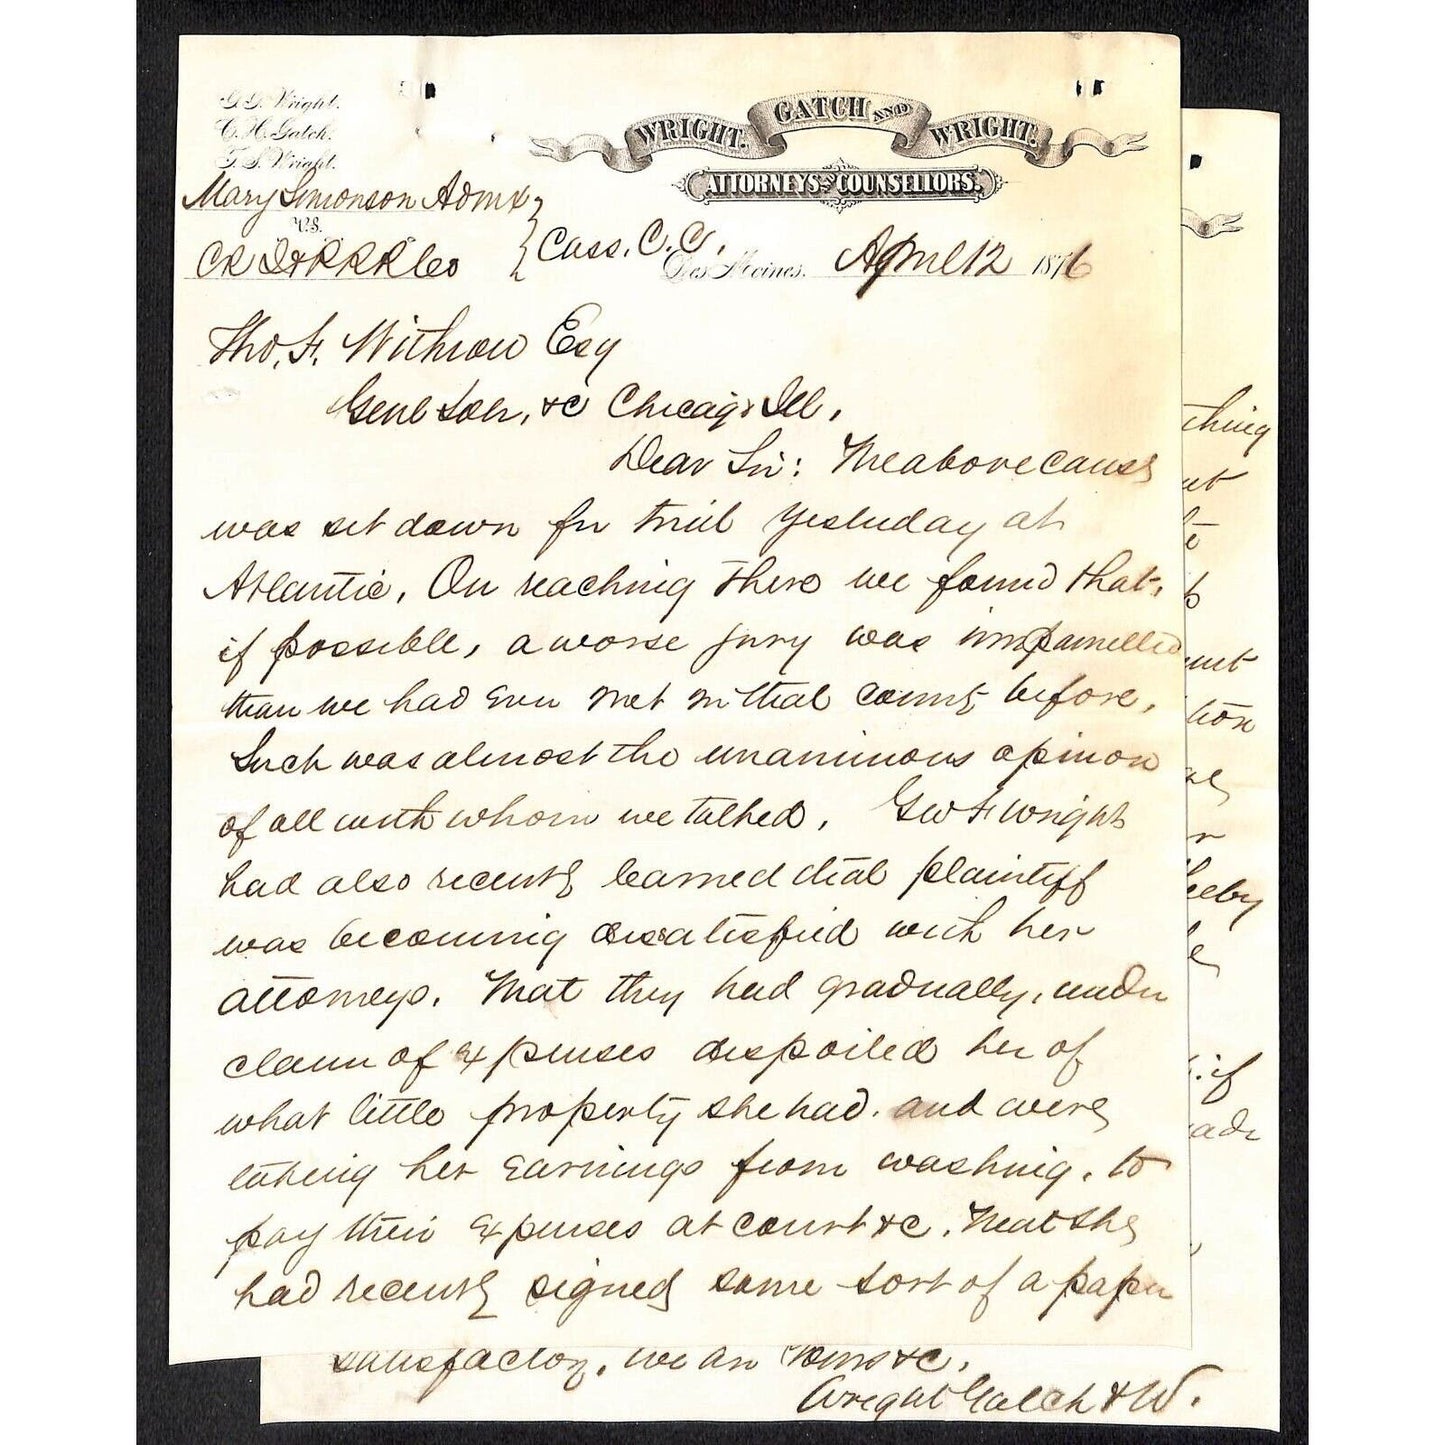 G. G. Wright.
C. H. Gatch.
T. S. Wright.
WRIGHT. GATCH AND WRIGHT.
ATTORNEYS AND COUNSELLORS.
Mary Simonson Admx
vs.
CR I & P RR Co
Cass. C. C.
Des Moines. April 12 1876
Tho. F. Withrow Esq
Genl Solr, &c Chicago Ill,
Dear Sir: The above cause
was set down for trial yesterday at
Atlantic. On reaching there we found that,
if possible, a worse jury was impannelled
than we had ever met in that county before,
Such was almost the unanimous opinion
of all with whom we talked. Wright
had also recently learned that plaintiff
was becoming dissatisfied with her
attorneys. That they had gradually, under
claim of expenses despoiled her of
what little property she had. and were
taking her earnings from washing, to
pay their expenses at court &c. That she
had recently signed some sort of a paper
satisfactory, we are Yours &c,
Wright Gatch & W.
thing
ut
if